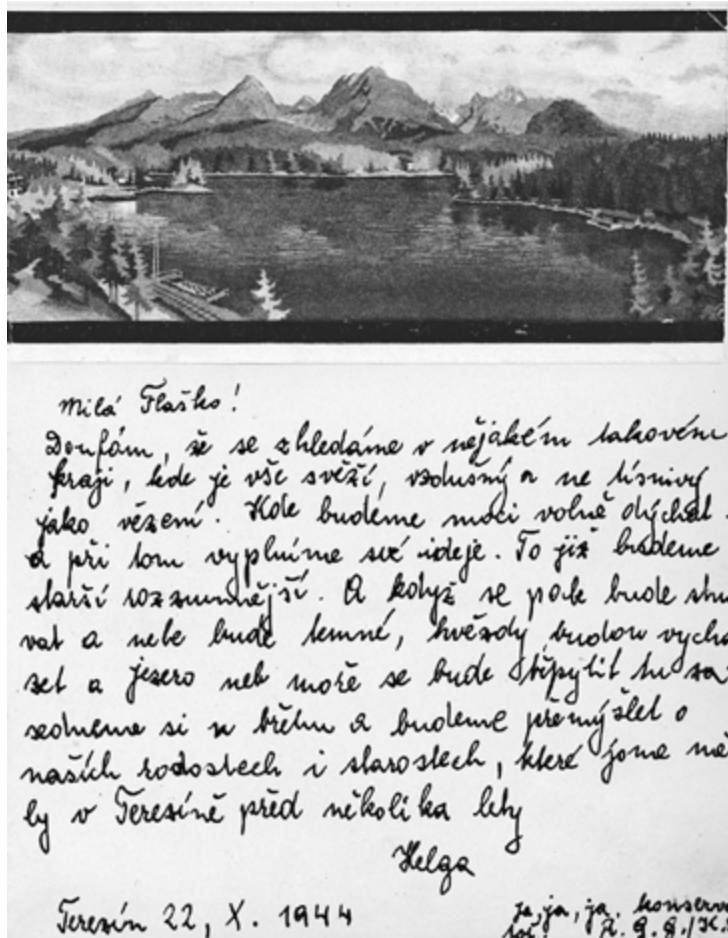 Milá Flaško!
Doufám, že se shledáme v nějakém takovém
kraji, kde je vše svěží, vzdušný a ne tísnivý
jako vězení. Kde budeme moci volně dýchat
a při tom vyplníme své ideje. To již budeme
starší rozzumnější. A když se pak bude stmí
vat a nebe bude temné, hvězdy budou vychá
zet a jezero neb moře se bude třpytit tu
sedneme si u břehu a budeme přemýšlet o
našich radostech i starostech, které jsme mě
ly v Terezíně před několika lety
Helga
Terezín 22, X. 1944
ja, ja, ja, konserv